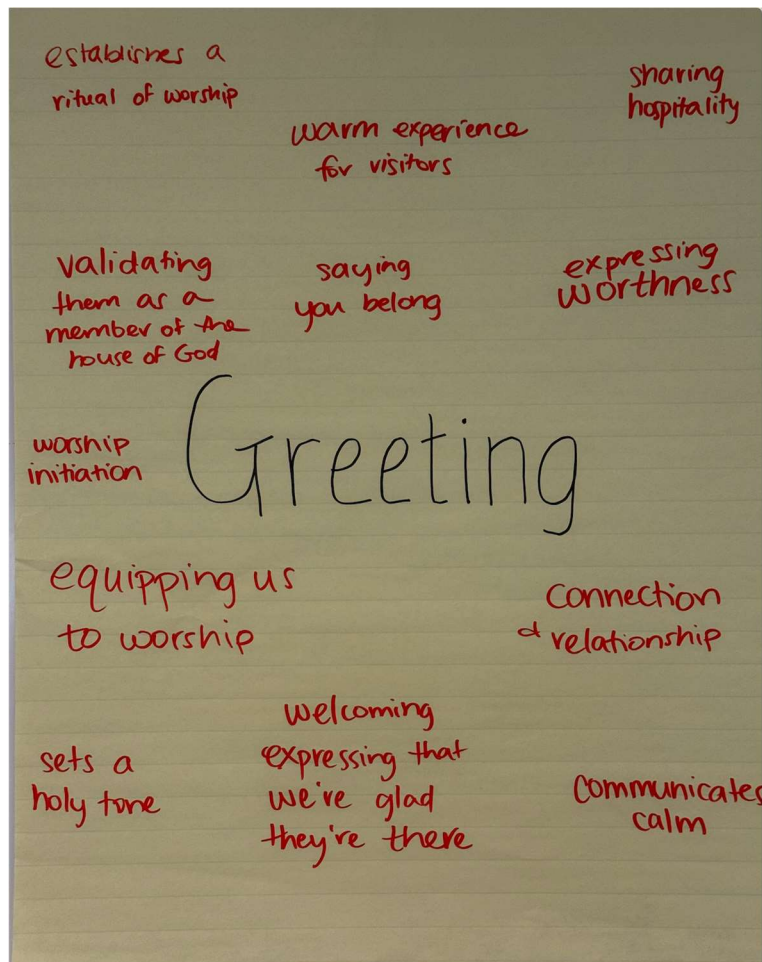 establishes a
ritual of worship
sharing
hospitality
warm experience
for visitors
validating
them as a
member of the
house of God
saying
you belong
expressing
worthness
worship
initiation
Greeting
equipping us
to worship
connection
& relationship
sets a
holy tone
welcoming
expressing that
we're glad
they're there
communicates
calm